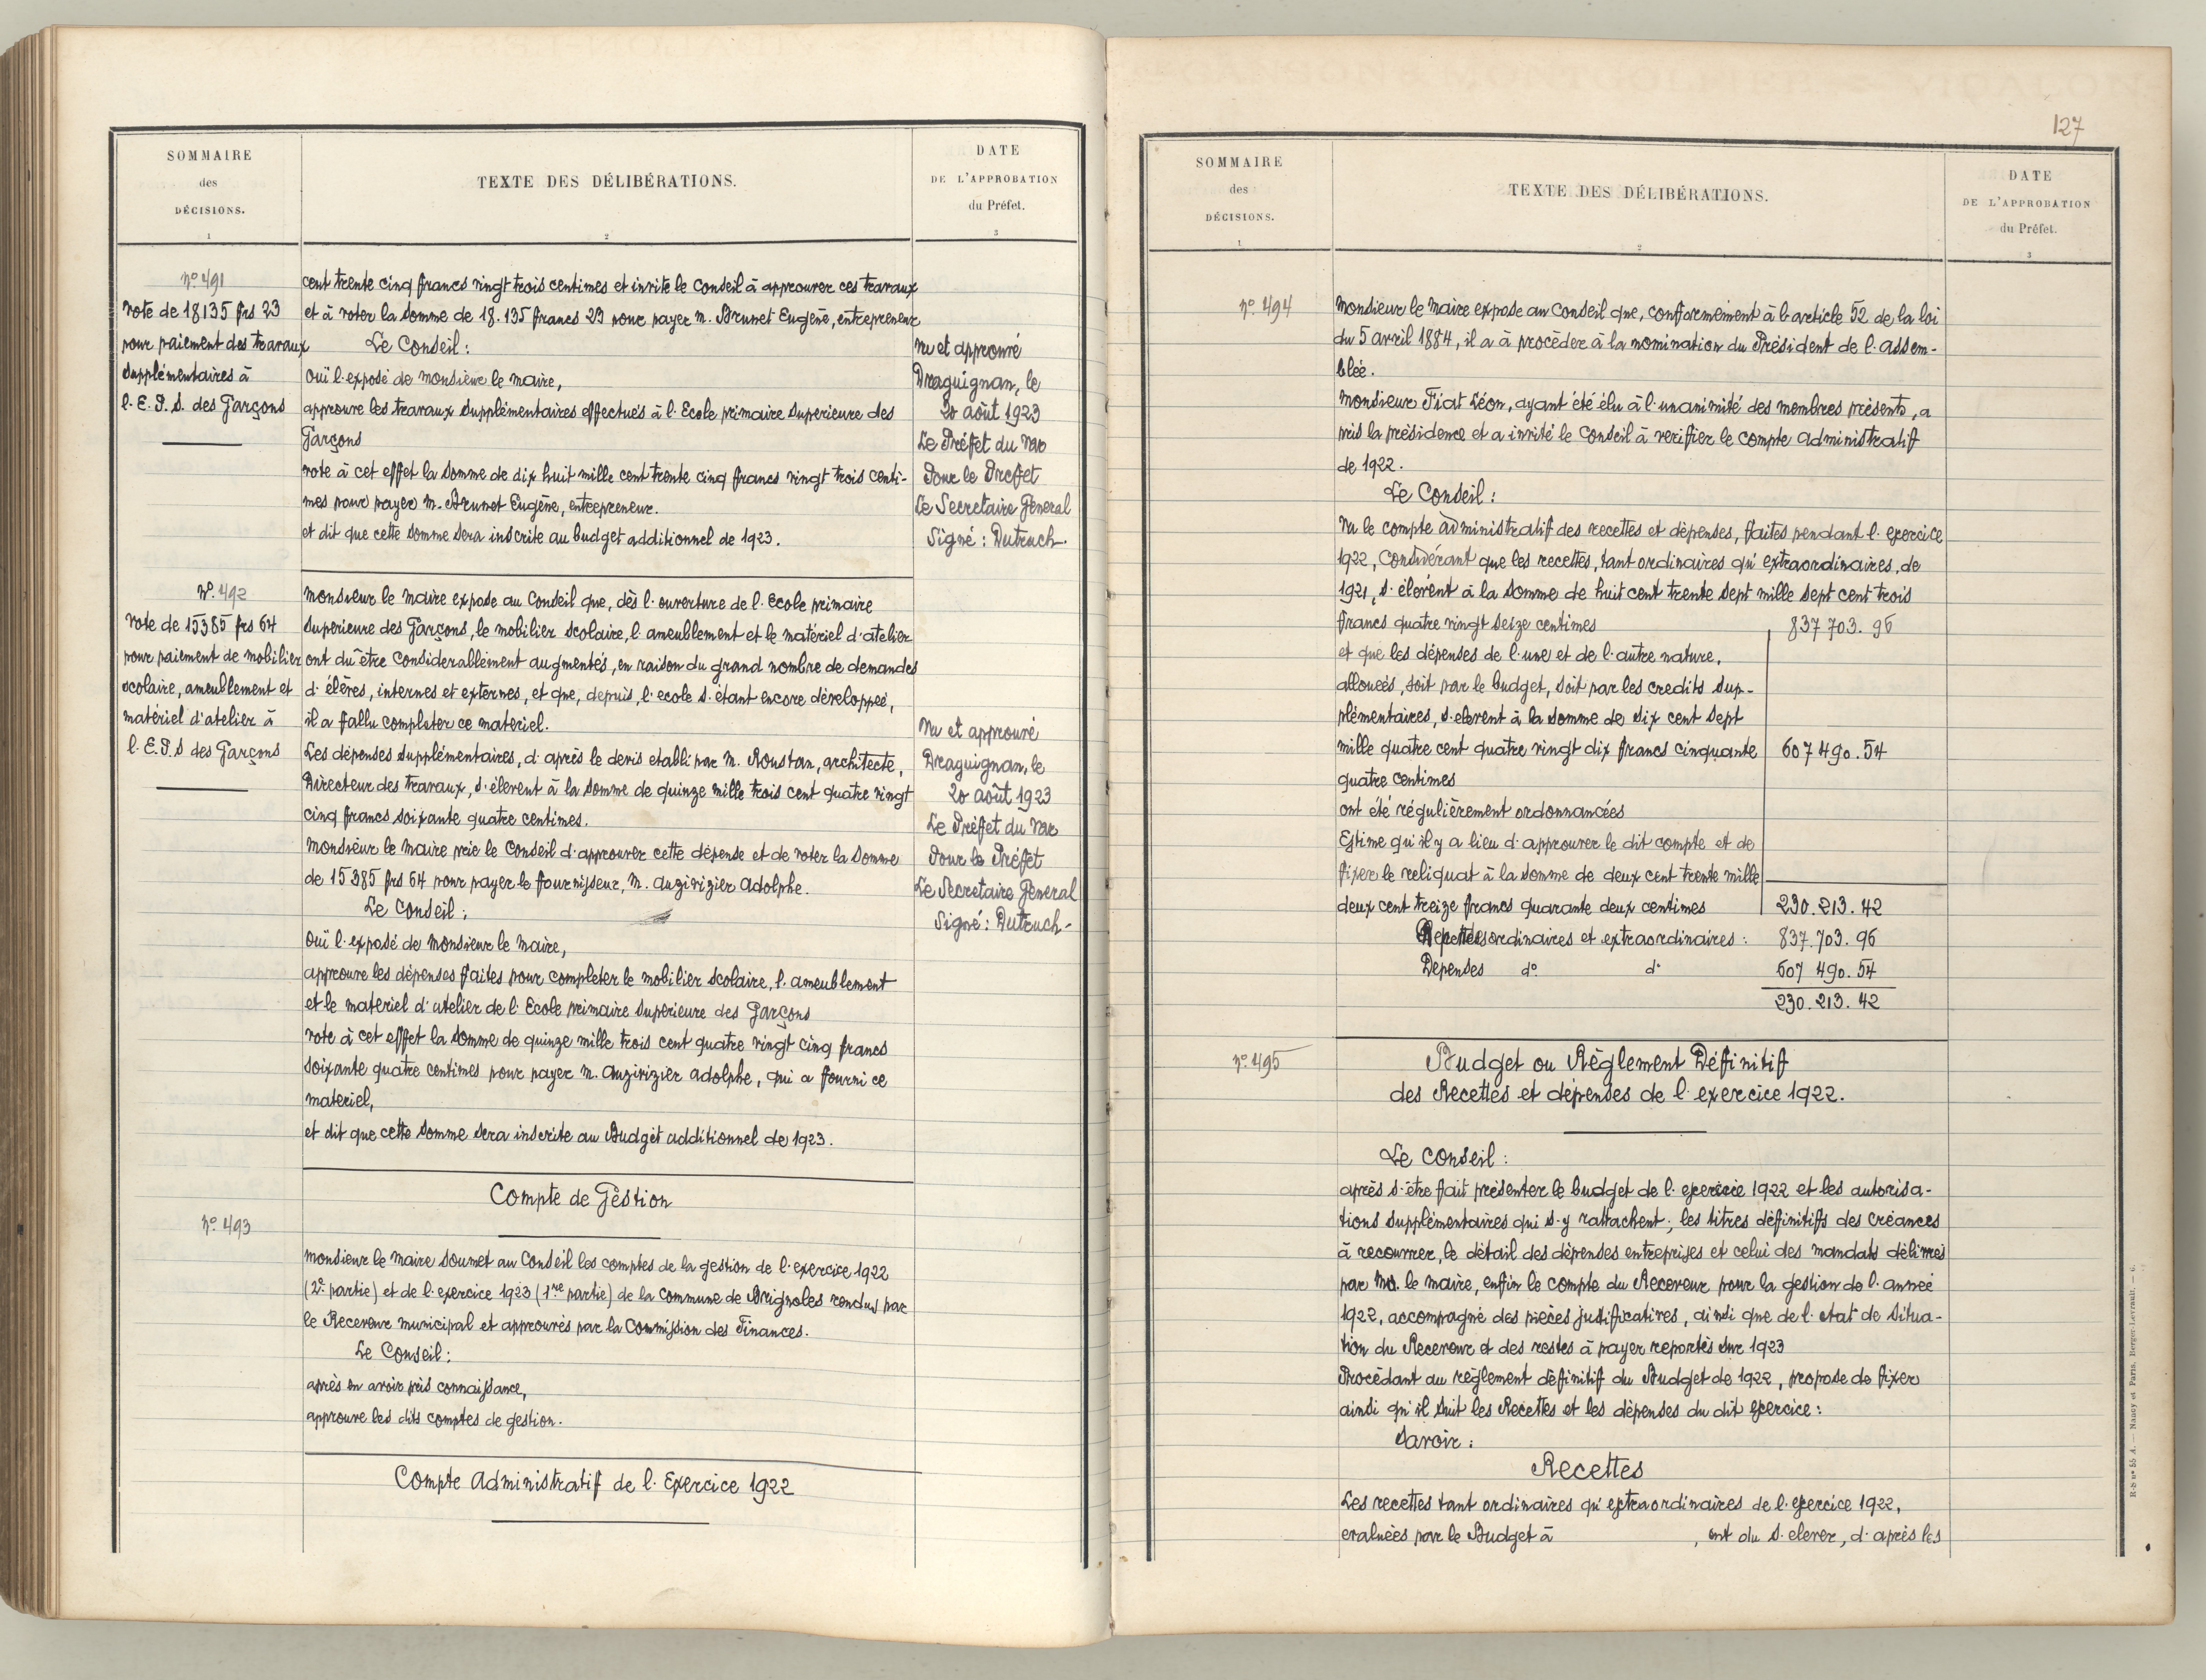 SOMMAIRE
des
DÉCISIONS.
1
TEXTE DES DÉLIBÉRATIONS.
2
DATE
DE L'APPROBATION
du Préfet.
3
nº 491
vote de 18135 frs 23
pour paiement des travaux
supplémentaires à
l. E. P. S. des Garçons
cent trente cinq francs vingt trois centimes et invite le Conseil à approuver ces travaux
et à voter la somme de 18.135 francs 23 pour payer M. Brunet Eugène, entrepreneur
Le Conseil :
Ouï l'exposé de Monsieur le Maire,
approuve les travaux supplémentaires effectués à l'Ecole primaire superieure des
Garçons
vote à cet effet la somme de dix huit mille cent trente cinq francs vingt trois centi-
mes pour payer M. Brunet Eugène, entrepreneur.
et dit que cette somme sera inscrite au budget additionnel de 1923.
Vu et approuvé
Draguignan, le
20 août 1923
Le Préfet du Var
Pour le Prefet
Le Secretaire General
Signé : Dutruch.
Nº. 492
Vote de 15385 frs 64
pour paiement de mobilier
scolaire, ameublement et
matériel d'atelier à
l. E. P. S des Garçons
Monsieur le Maire expose au Conseil que, dès l'ouverture de l'école primaire
Superieure des Garçons, le mobilier scolaire, l'ameublement et le matériel d'atelier
ont dû être considerablement augmentés, en raison du grand nombre de demandes
d'élèves, internes et externes, et que, depuis, l'ecole s'étant encore développée,
il a fallu completer ce materiel.
Les dépenses supplémentaires, d'après le devis etabli par M. Roustan, architecte,
Directeur des travaux, s'élevent à la somme de quinze mille trois cent quatre vingt
cinq francs soixante quatre centimes.
Monsieur le Maire prie le Conseil d'approuver cette dépense et de voter la somme
de 15385 frs 64 pour payer le fournisseur, M. Auzivizier Adolphe.
Le Conseil :
Ouï l'exposé de Monsieur le Maire,
approuve les dépenses faites pour completer le mobilier scolaire, l'ameublement
et le materiel d'atelier de l'Ecole primaire Superieure des Garçons
vote à cet effet la somme de quinze mille trois cent quatre vingt cinq francs
soixante quatre centimes pour payer M. Auzivizier Adolphe, qui a fourni ce
materiel,
et dit que cette somme sera inscrite au Budget additionnel de 1923.
Vu et approuvé
Draguignan, le
20 août 1923
Le Préfet du Var
Pour le Préfet
Le Secretaire General
Signé : Dutruch-
Compte de Gestion
Nº. 493
Monsieur le Maire soumet au Conseil les comptes de la gestion de l'exercice 1922
(2e partie) et de l'exercice 1923 (1re partie) de la commune de Brignoles rendus par
le Receveur municipal et approuvés par la Commission des Finances.
Le Conseil :
après en avoir pris connaissance,
approuve les dits comptes de gestion.
Compte Administratif de l'Exercice 1922
127
SOMMAIRE
des
DÉCISIONS.
1
TEXTE DES DÉLIBÉRATIONS.
2
DATE
DE L'APPROBATION
du Préfet.
3
Nº. 494
Monsieur le Maire expose au Conseil que, conformément à l'article 52 de la loi
du 5 avril 1884, il a à procéder à la nomination du Président de l'assem-
blée.
Monsieur Fiat Léon, ayant été élu à l'unanimité des membres présents, a
pris la présidence et a invité le Conseil à verifier le compte administratif
de 1922.
Le Conseil :
Vu le compte administratif des recettes et dépenses, faites pendant l'exercice
1922, Considérant que les recettes, tant ordinaires qu'extraordinaires, de
1921, s'élevent à la somme de huit cent trente sept mille sept cent trois
francs quatre vingt seize centimes 837 703. 96
et que les dépenses de l'une et de l'autre nature,
allouées, soit par le budget, soit par les credits sup-
plémentaires, s'elevent à la somme de six cent sept
mille quatre cent quatre vingt dix francs cinquante 607 490. 54
quatre centimes
ont été régulièrement ordonnancées
Estime qu'il y a lieu d'approuver le dit compte et de
fixer le reliquat à la somme de deux cent trente mille
deux cent treize francs quarante deux centimes 230. 213. 42
Recettes ordinaires et extraordinaires : 837. 703. 96
Depenses dº dº 607 490. 54
230. 213. 42
Nº. 495
Budget ou Règlement Définitif
des Recettes et dépenses de l'exercice 1922.
Le Conseil :
après s'être fait présenter le budget de l'exercice 1922 et les autorisa-
tions supplémentaires qui s'y rattachent ; les titres définitifs des créances
à recouvrer, le détail des dépenses entreprises et celui des mandats délivrés
par M. le Maire, enfin le compte du Receveur pour la gestion de l'année
1922, accompagné des pièces justificatives, ainsi que de l'etat de situa-
tion du Receveur et des restes à payer reportés sur 1923
Procédant au règlement définitif du Budget de 1922, propose de fixer
ainsi qu'il suit les Recettes et les dépenses du dit exercice :
Savoir :
Recettes
Les recettes tant ordinaires qu'extraordinaires de l'exercice 1922,
evaluées par le Budget à , ont du s'elever, d'après les
R·S nº 55 A. — Nancy et Paris, Berger-Levrault. — 6.